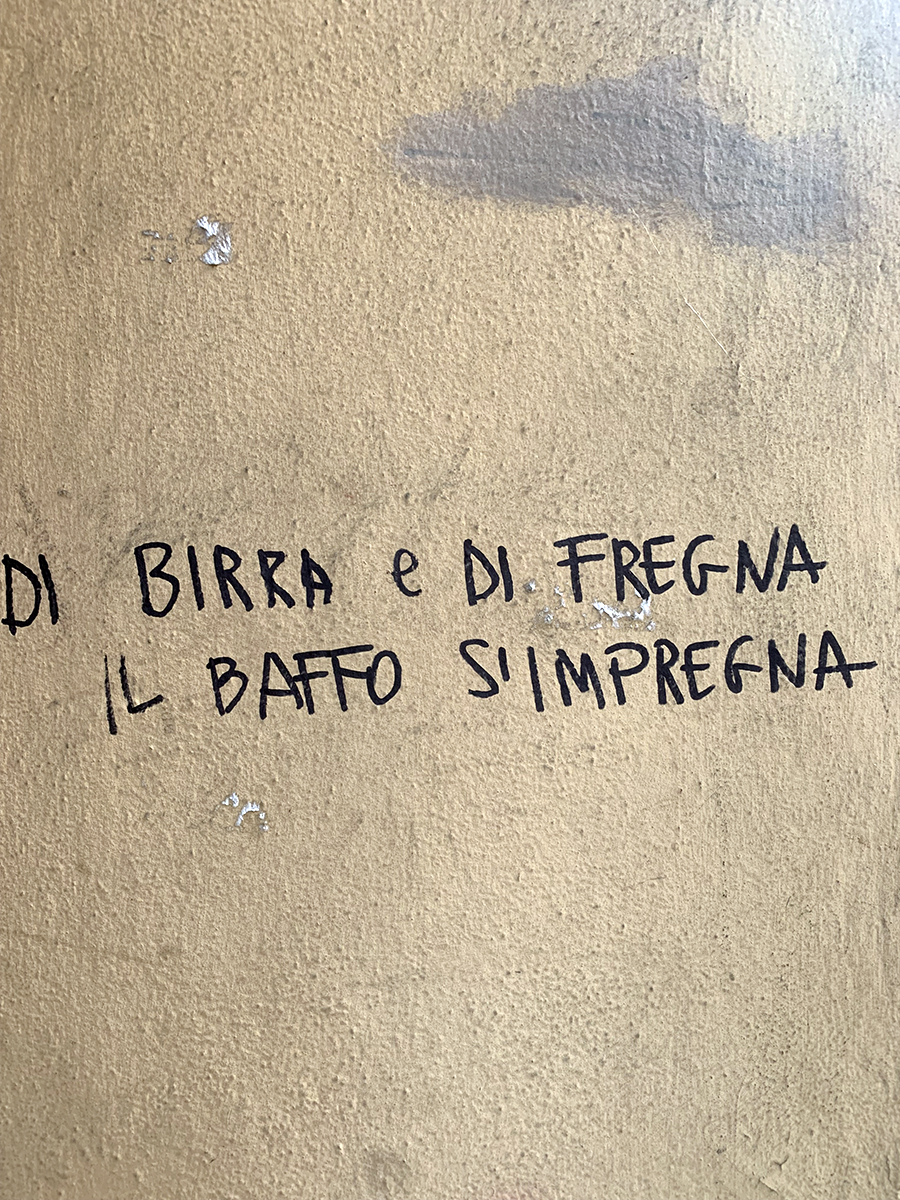 DI BIRRA e DI FREGNA
IL BAFFO S'IMPREGNA